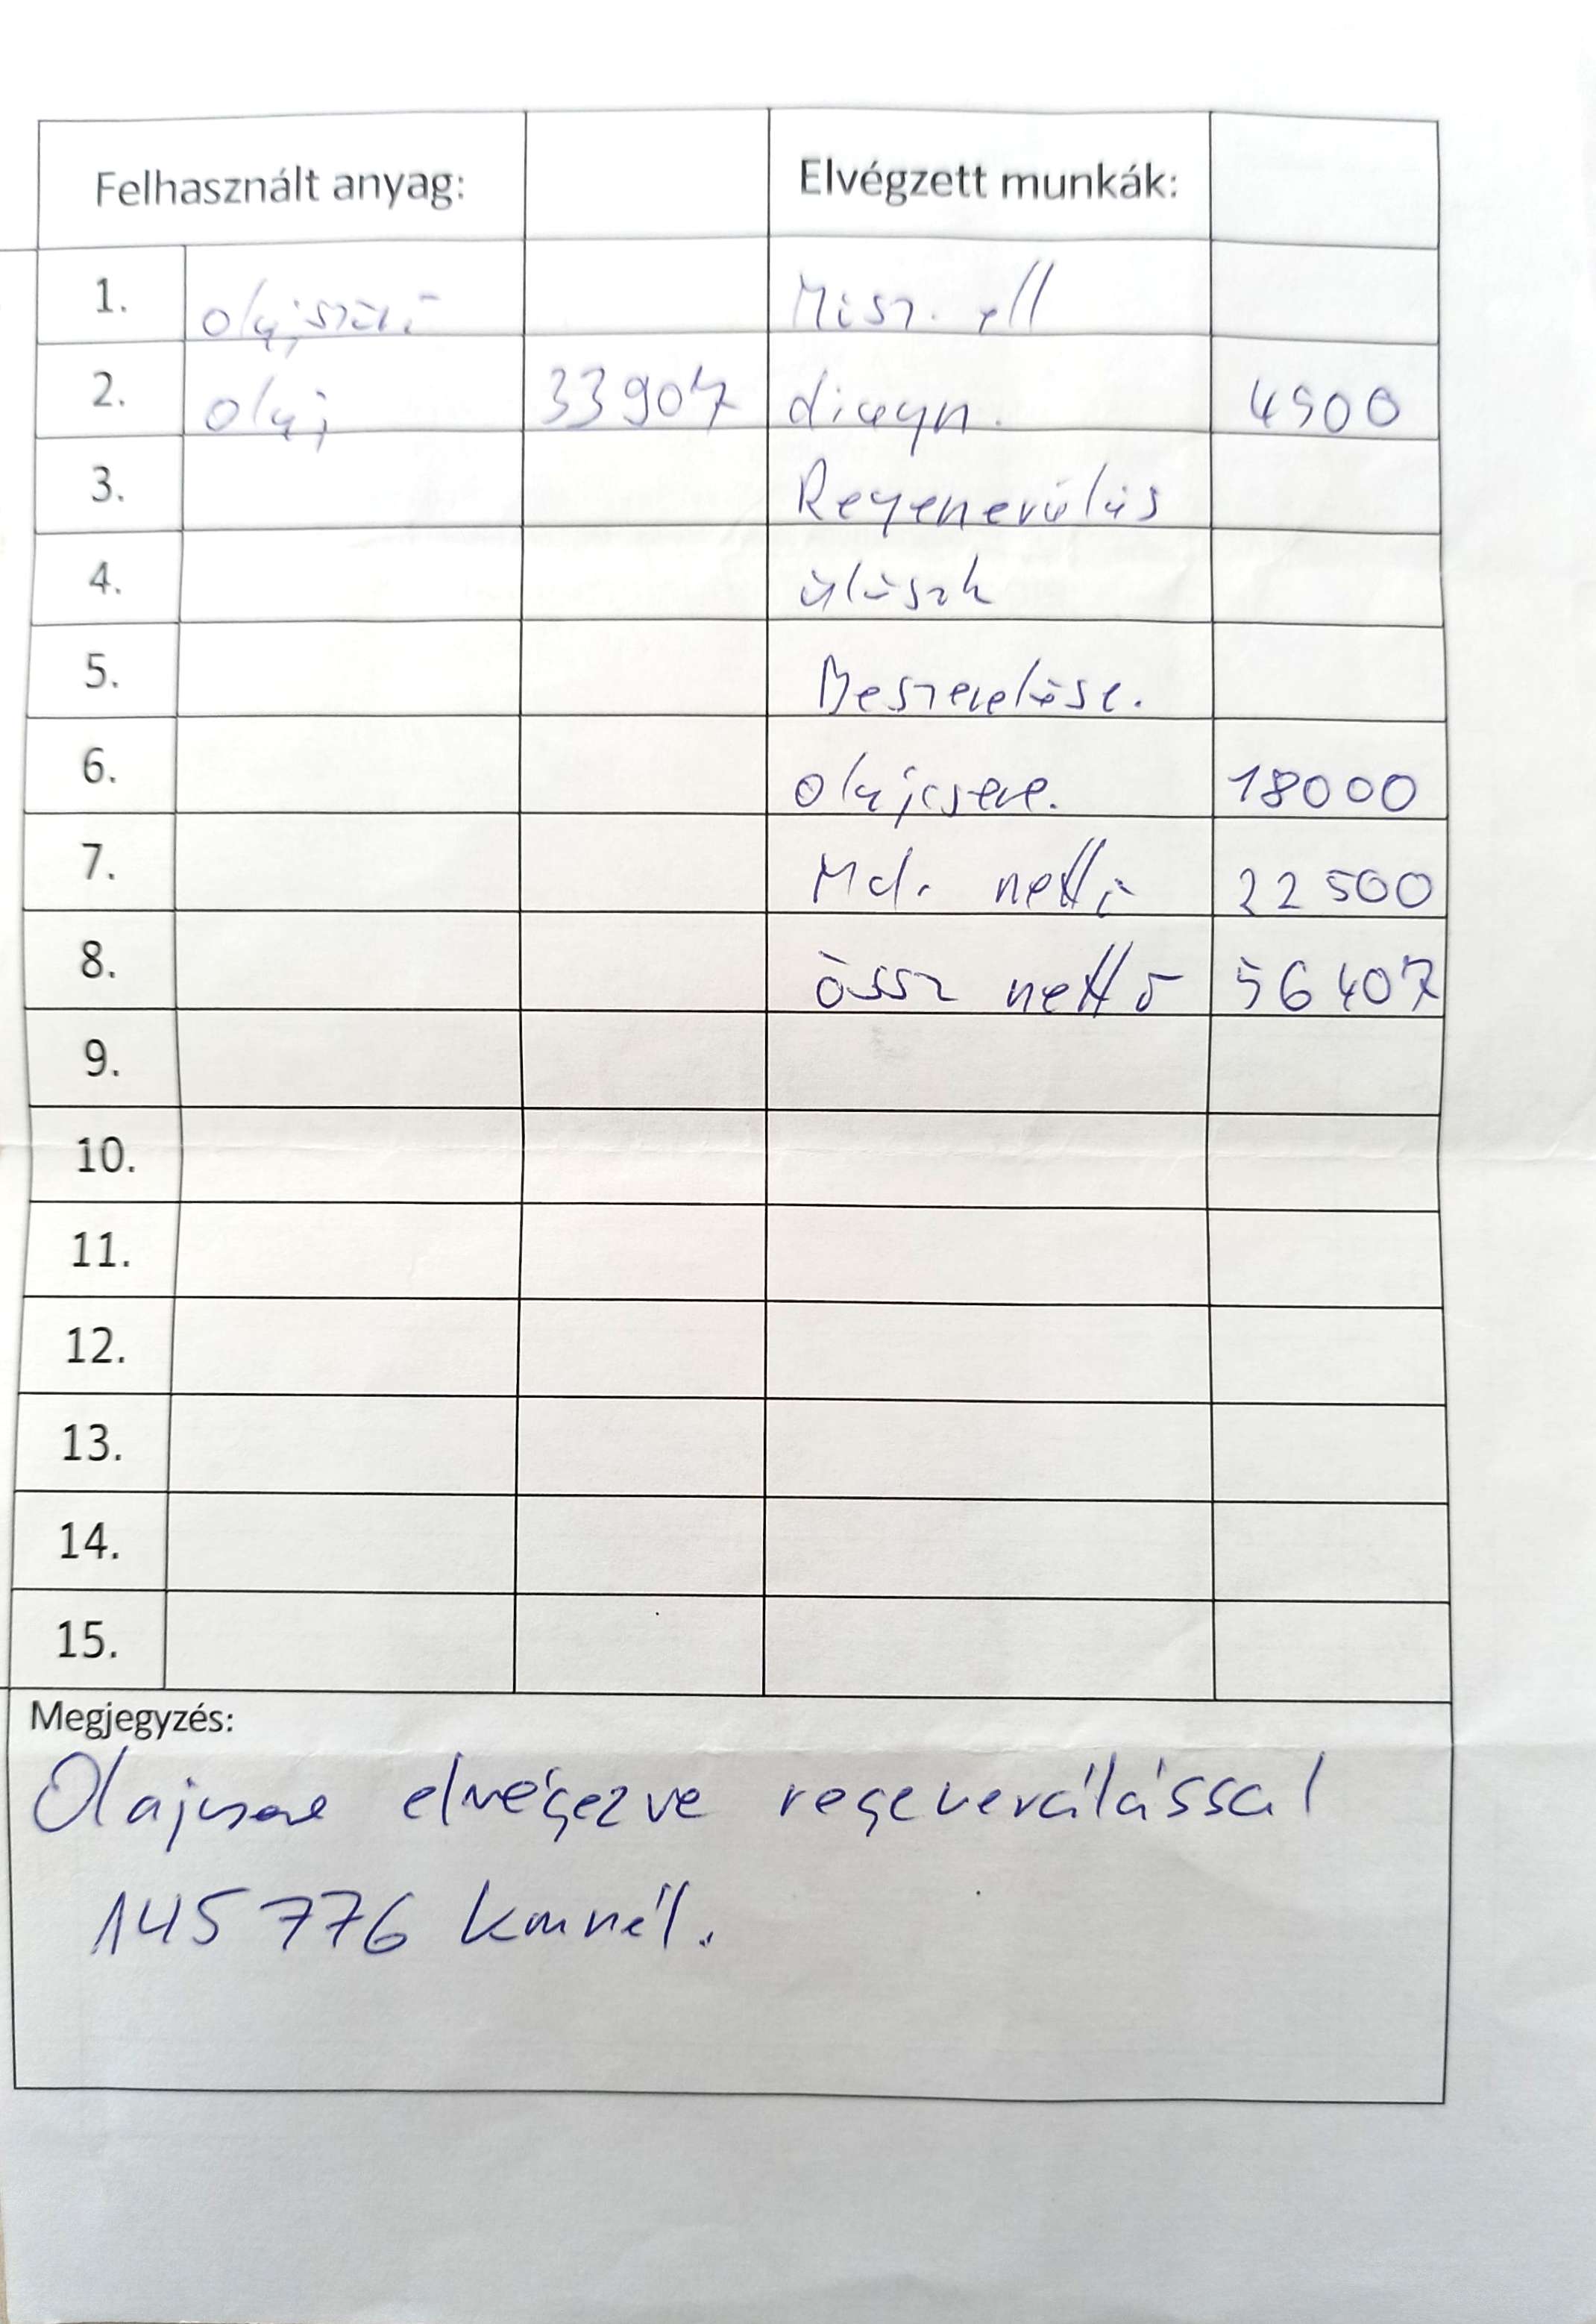 Felhasznált anyag: Elvégzett munkák:
1. olajszűrő Műsz. ell
2. olaj 33907 diagn. 4500
3. Regenerálás
4. ülések
5. Beszerelése.
6. olajcsere. 18000
7. Md. nettó 22500
8. össz nettó 56407
9.
10.
11.
12.
13.
14.
15.
Megjegyzés:
Olajcsere elvégezve regenerálással
145776 kmnél.